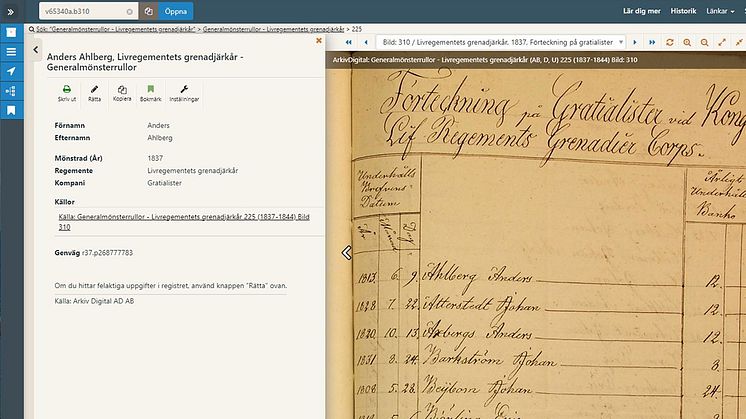 v65340a.b310
Öppna
Lär dig mer
Historik
Länkar
Sök: "Generalmönsterrullor - Livregementets grenadjärkår" > Generalmönsterrullor - Livregementets grenadjärkår > 225
Bild: 310 / Livregementets grenadjärkår, 1837. Förteckning på gratialister
Anders Ahlberg, Livregementets grenadjärkår -
Generalmönsterrullor
Skriv ut
Rätta
Kopiera
Bokmärk
Inställningar
Förnamn Anders
Efternamn Ahlberg
Mönstrad (År) 1837
Regemente Livregementets grenadjärkår
Kompani Gratialister
Källor
Källa: Generalmönsterrullor - Livregementets grenadjärkår 225 (1837-1844) Bild
310
Genväg r37.p268777783
Om du hittar felaktiga uppgifter i registret, använd knappen "Rätta" ovan.
Källa: Arkiv Digital AD AB
ArkivDigital: Generalmönsterrullor - Livregementets grenadjärkår (AB, D, U) 225 (1837-1844) Bild: 310
Förteckning på Gratialister vid Kong
Lif Regements Grenadier Corps.
Underhålls
Brefvens
Datum
Årligt
Underhåll
Banko
År Månad Dag
1813. 6. 9. Ahlberg Anders 12.
1828. 7. 22. Atterstedt Johan 12.
1820. 10. 13. Axbergs Anders 12.
1831 8. 24. Barkström Johan 8.
1808. 5. 28. Beijbom Johan 24.